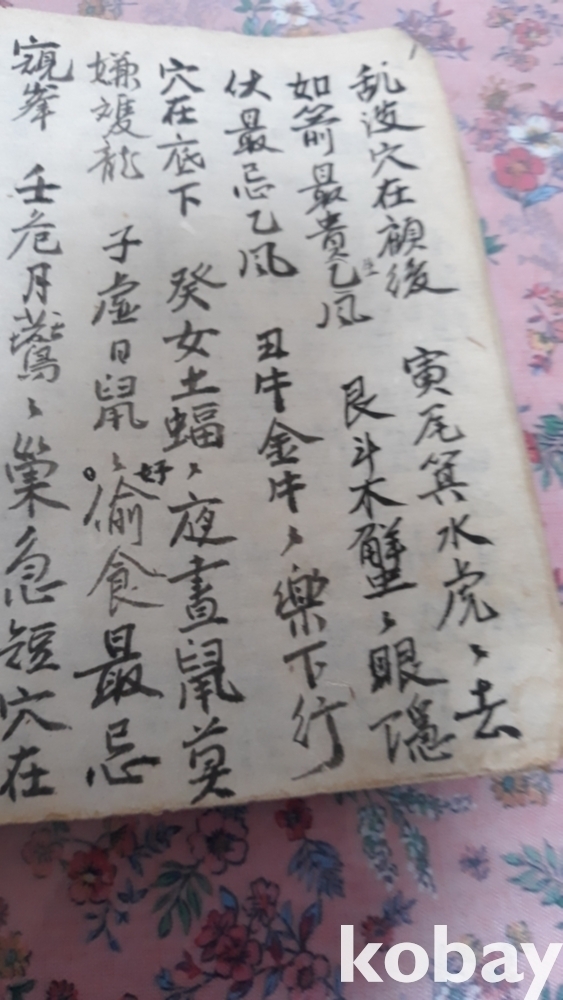 乱波穴在額後 寅尾箕水虎〻去
如箭最貴乙風 艮斗木蟹〻眼隱
伏最忌乙風 丑牛金牛〻樂下行
穴在底下 癸女土蝠〻夜晝鼠莫
嫌隻龍 子虛日鼠〻好偷食最忌
窺峯 壬危月鷰〻巢急短穴在
kobay